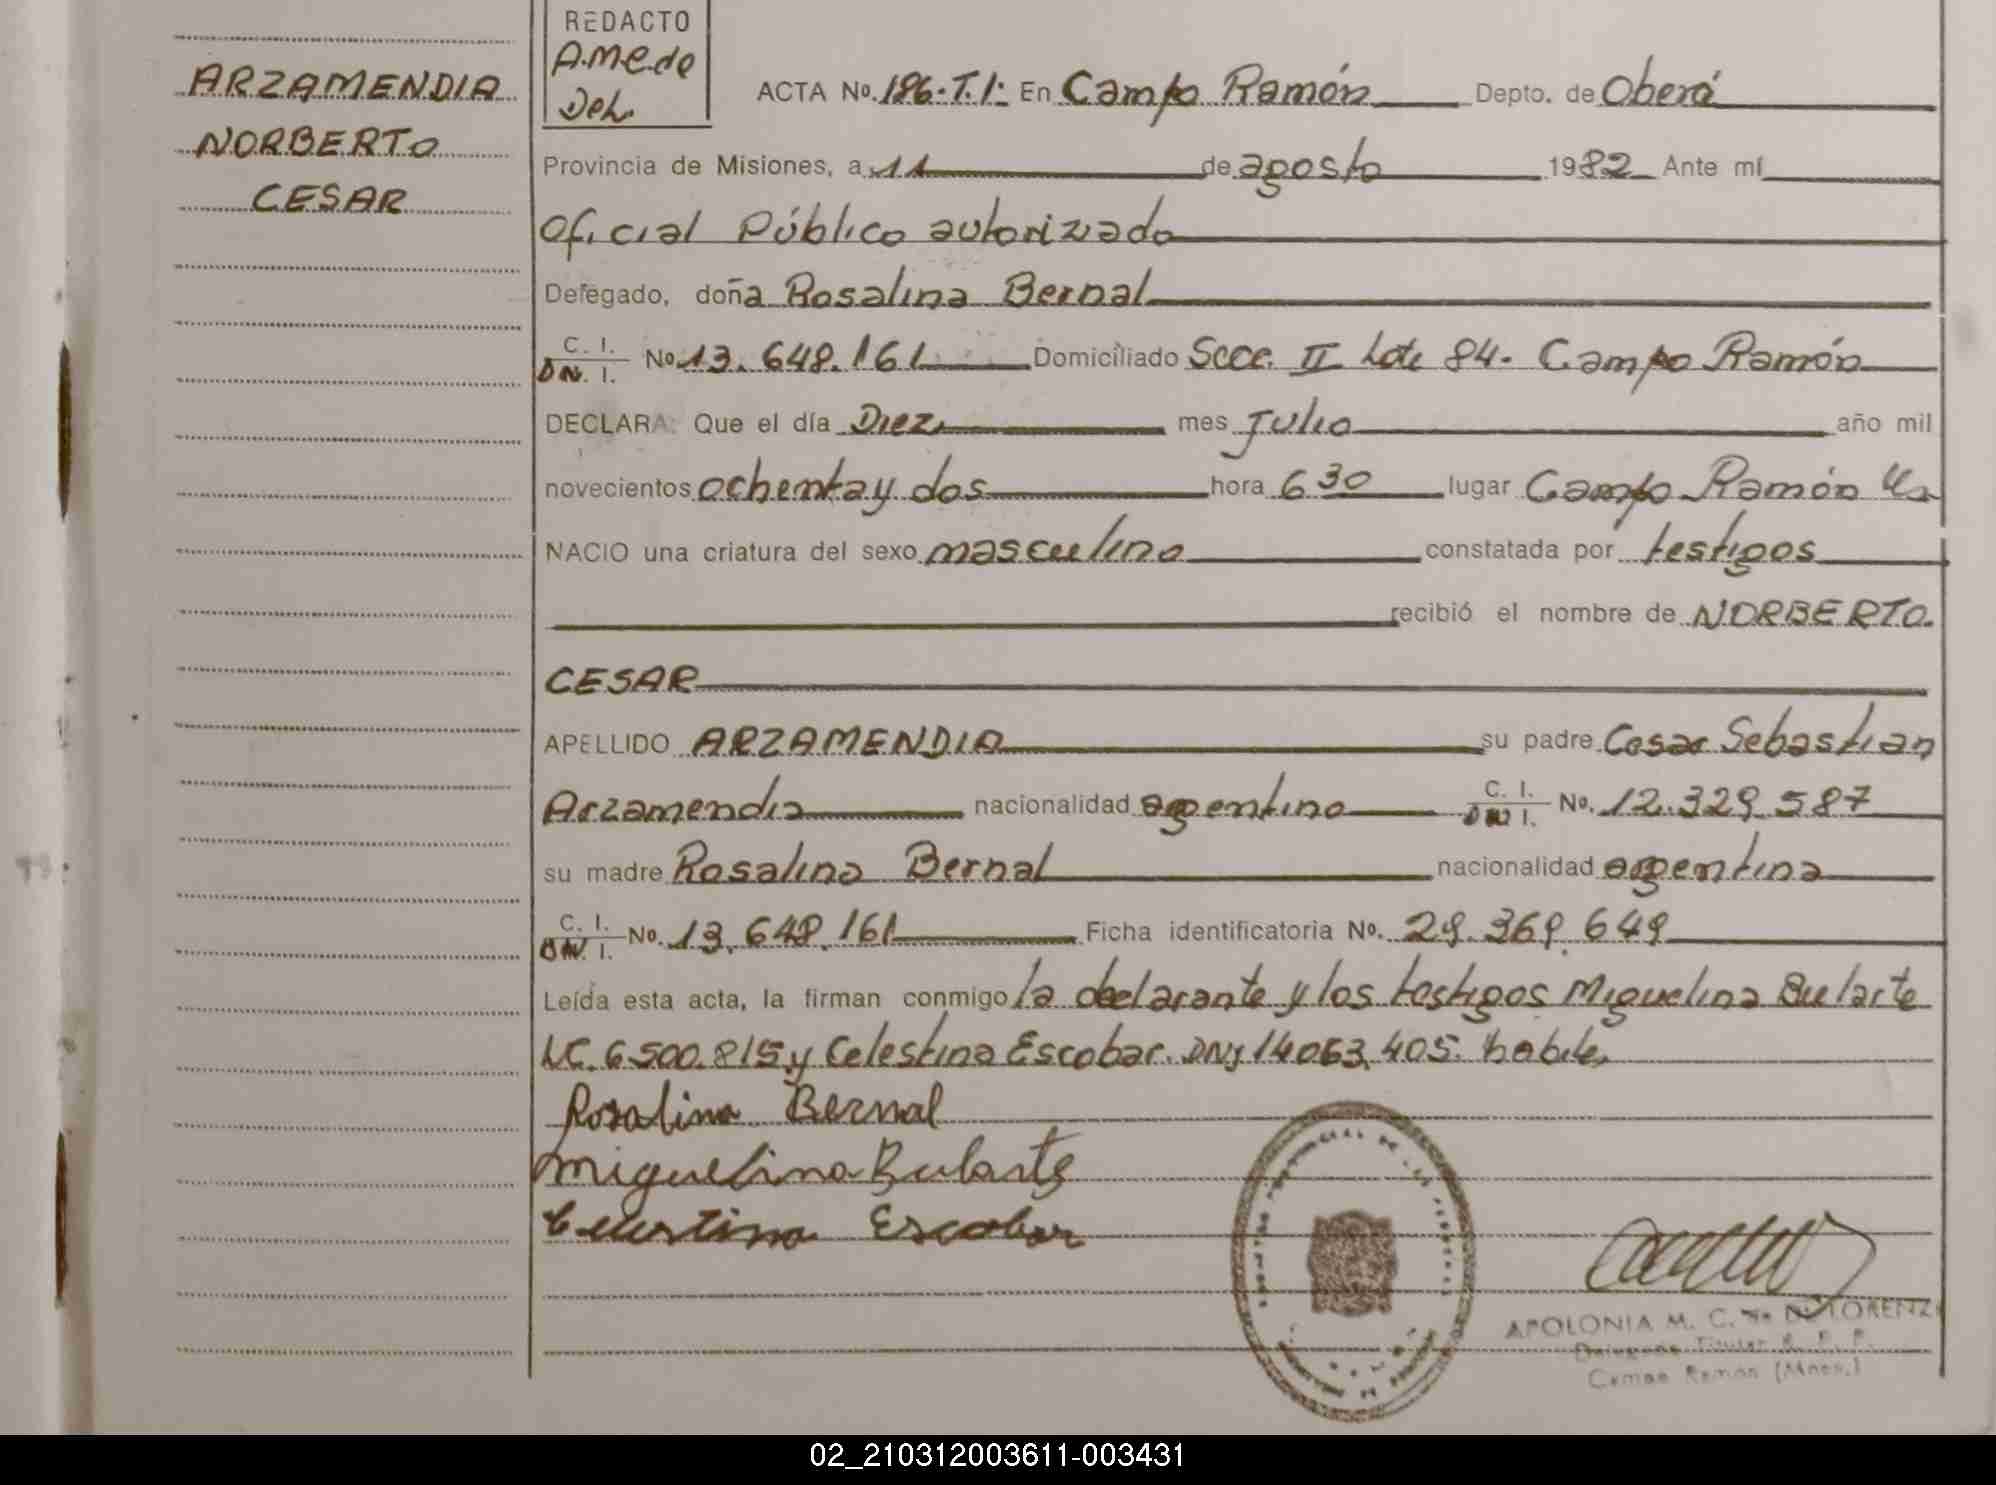 ARZAMENDIA
NORBERTO
CESAR
REDACTO
A.M.C.de
DeL.
ACTA No. 186.T.I. En Campo Ramón Depto. de Oberá
Provincia de Misiones, a 11 de agosto 1982 Ante mí
Oficial Público autorizado
Delegado, doña Rosalina Bernal
C. I.
DN. I. No 13.648.161 Domiciliado Secc. II Lote 84. Campo Ramón
DECLARA: Que el día Diez mes Julio año mil
novecientos ochenta y dos hora 6 30 lugar Campo Ramón
NACIO una criatura del sexo masculino constatada por testigos
recibió el nombre de NORBERTO.
CESAR
APELLIDO ARZAMENDIA su padre Cesar Sebastian
Arzamendia nacionalidad argentino C. I. DN I. No. 12.329.587
su madre Rosalina Bernal nacionalidad argentina
C. I. DN. I. No. 13.648.161 Ficha identificatoria No. 29.369.649
Leída esta acta, la firman conmigo la declarante y los testigos Miguelina Bularte
LC. 6.500.815 y Celestina Escobar. DNI 14063.405. habiles
Rosalina Bernal
Miguelina Bularte
Celestina Escobar
APOLONIA M. C. DE LORENZ
Delegada Titular R. P. P.
Campo Ramon (Mnes.)
02_210312003611-003431